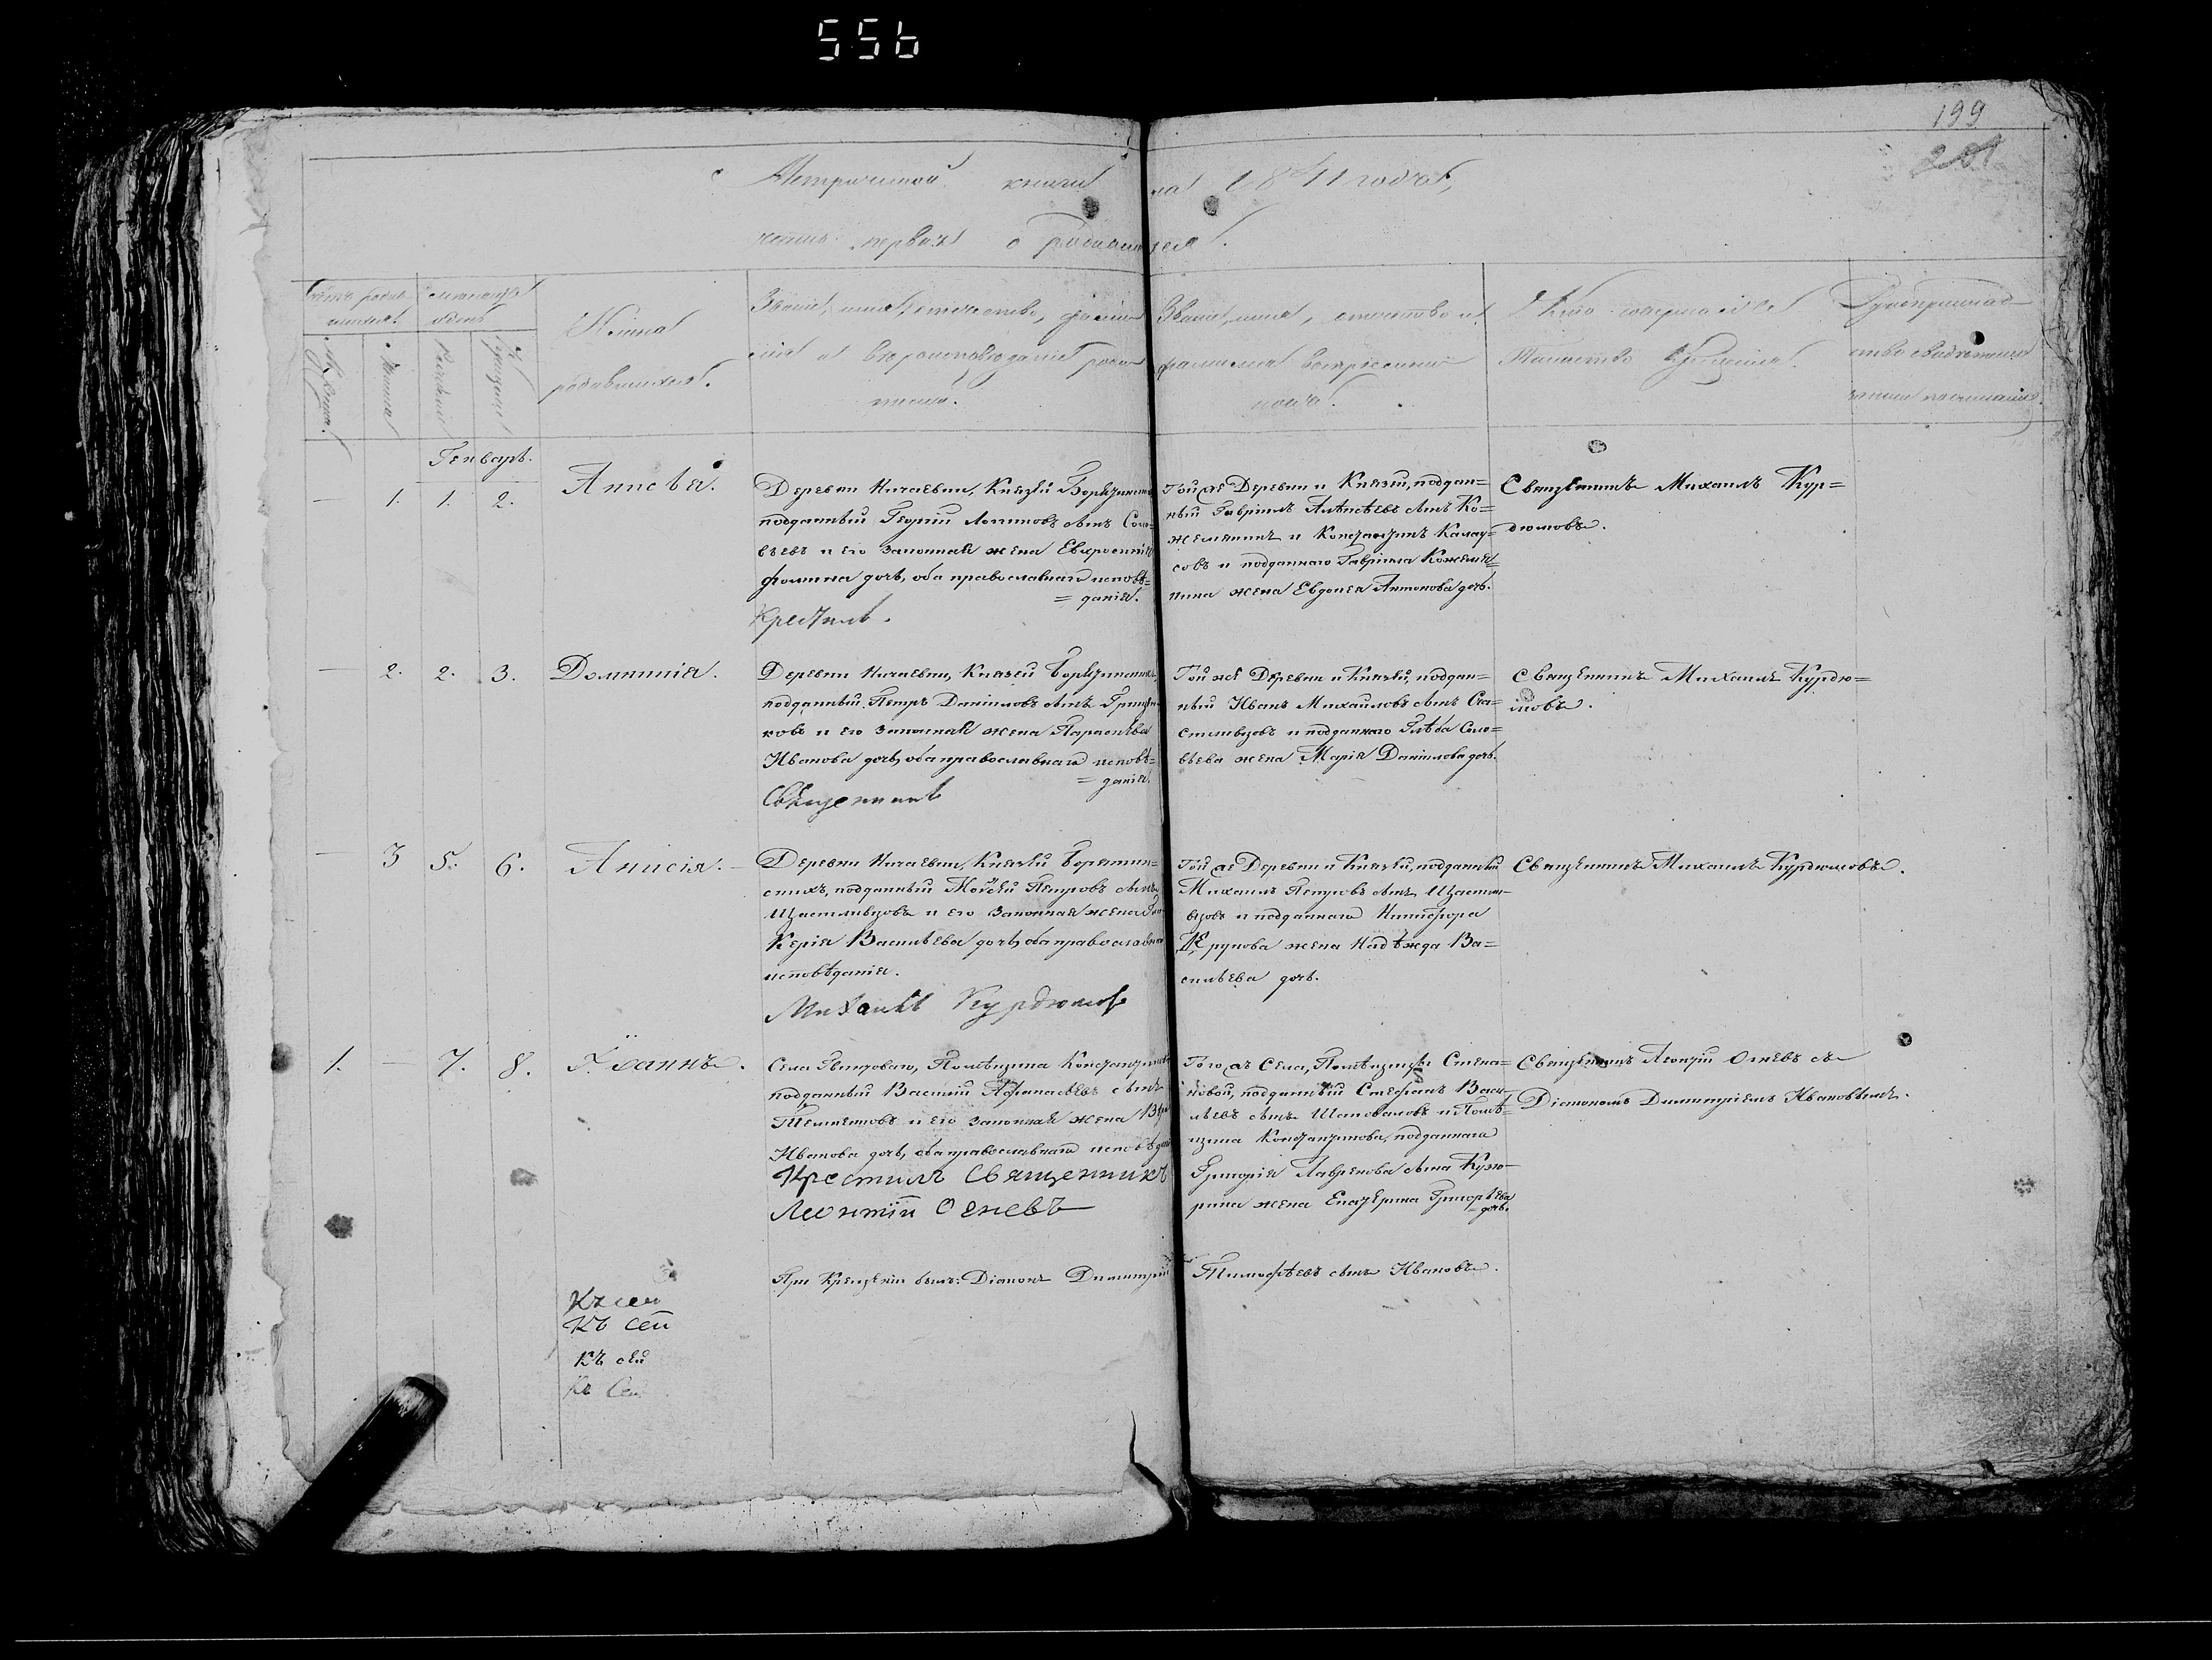 556
199
201
Метрической книги на 1841 года,
часть первая о родившихся.
Счетъ родив-
шихся.
Мужеска.
Женска
Месяцъ
и день
Рожденія
Крещенія
Имена
родившихся.
Званіе, имя, отчество, фами-
лія и вероисповеданіе роди-
телей.
Званіе, имя, отчество и
фамилія воспріемни-
ковъ.
Кто совершалъ
Таинство Крещенія.
Рукоприклад-
ство свидетелей
записи по желанію.
Генварь.
— 1. 1. 2. Анисія.
Деревни Ничаевки, Князей Борятинскихъ
подданный Георгій Логиновъ сынъ Соло-
вьевъ и его законная жена Евфросинія
Фомина дочь, оба православнаго исповѣ=
=данія.
Крестилъ.
Той же Деревни и Князей, поддан=
ный Гавріилъ Алексѣевъ сынъ Ко=
жемякинъ и Константинъ Калау=
совъ и подданнаго Гавріила Кожемя=
кина жена Евдокія Антонова дочь.
Священникъ Михаилъ Кур=
дюмовъ.
— 2. 2. 3. Домникія.
Деревни Ничаевки, Князей Борятинскихъ,
подданный Петръ Даніиловъ сынъ
ковъ и его законная жена Параскева
Иванова дочь, оба православнаго исповѣ=
=данія.
Священникъ
Той же Деревни и Князей, поддан=
ный Иванъ Михайловъ сынъ Сча=
стливцовъ и подданнаго Глѣба Соло=
вьева жена Марія Даніилова дочь.
Священникъ Михаилъ Курдю=
мовъ.
— 3 5. 6. Анисія.
Деревни Ничаевки, Князей Борятин=
скихъ, подданный Моѵсей Петровъ сынъ
Щастливцовъ и его законная жена Гли-
керія Васильева дочь, оба православнаго
исповѣданія.
Михаилъ Курдюмовъ
Той же Деревни и Князей, подданный
Михаилъ Петровъ сынъ Щастли-
вцовъ и подданнаго Никифора
рупова жена Надѣжда Ва=
сильева дочь.
Священникъ Михаилъ Курдюмовъ.
1. — 7. 8. Іоаннъ.
Села Гвидоваго, Помѣщика Константинова
подданный Василій Афанасьевъ сынъ
и его законная жена
Иванова дочь, оба православнаго исповѣданія
Крестилъ Священникъ
Леонтій Огневъ
Того жъ Села, Помѣщицы Степа=
новой, подданный Стефанъ Васи-
льевъ сынъ Шаповаловъ и Помѣ=
щика Константинова, подданнаго
Григорія Лавренова сына Кузю-
рина жена Екатерина Григорьева
=дочь.
Священникъ Леонтій Огневъ съ
Діакономъ Димитріемъ Ивановымъ.
При Крещеніи былъ: Діаконъ Димитрій Тимофѣевъ сынъ Ивановъ.
Къ сей
Къ сей
Къ сей
Къ Сей